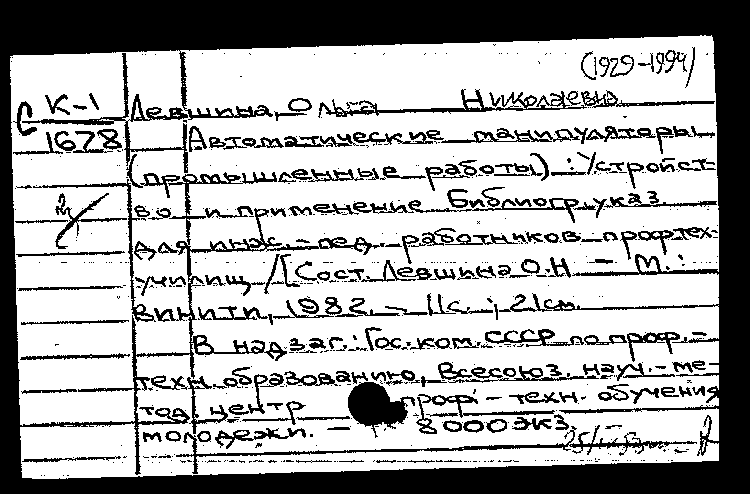 (1929-1994)
С К-1 Левшина, Ольга Николаевна.
1678 Автоматические манипуляторы
(промышленные работы) : Устройст-
во и применение Библиогр. указ.
для инж.-пед. работников профтех-
училищ /[Сост. Левшина О.Н — М.:
ВИНИТИ, 1982. — 11с. ; 21см.
В надзаг.: Гос. ком. СССР по проф.-
техн. образованию, Всесоюз. науч.-ме-
тод. центр проф - техн. обучения
молодежи. — 8000экз.